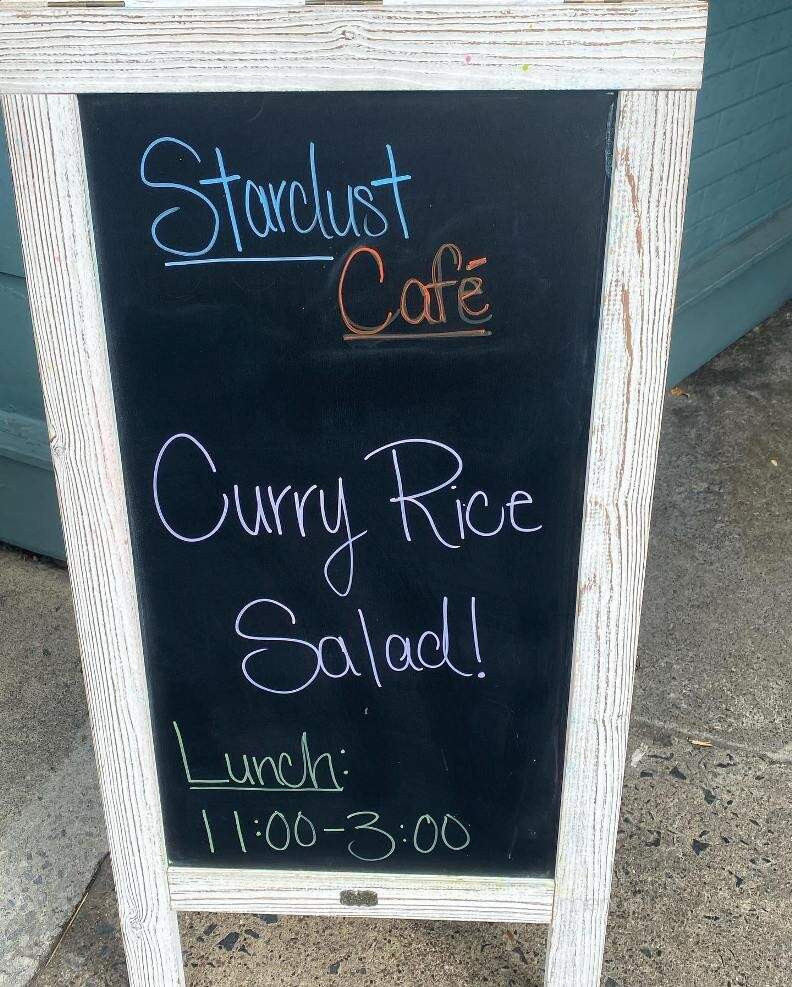 Stardust
Café
Curry Rice
Salad!
Lunch:
11:00-3:00